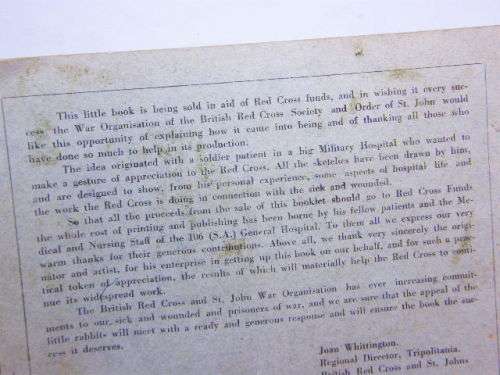 This little book is being sold in aid of Red Cross funds, and in wishing it every suc-
cess, the War Organisation of the British Red Cross Society and Order of St. John would
like this opportunity of explaining how it came into being and of thanking all those who
have done so much to help in its production.
The idea originated with a soldier patient in a big Military Hospital who wanted to
make a gesture of appreciation to the Red Cross. All the sketches have been drawn by him,
and are designed to show, from his personal experience, some aspects of hospital life and
the work the Red Cross is doing in connection with the sick and wounded.
So that all the proceeds from the sale of this booklet should go to Red Cross Funds
the whole cost of printing and publishing has been borne by his fellow patients and the Me-
dical and Nursing Staff of the 106 (S.A.) General Hospital. To them all we express our very
warm thanks for their generous contributions. Above all, we thank very sincerely the origi-
nator and artist, for his enterprise in getting up this book on our behalf, and for such a prac-
tical token of appreciation, the results of which will materially help the Red Cross to conti-
nue its widespread work.
The British Red Cross and St. John War Organisation has ever increasing commit-
ments to our sick and wounded and prisoners of war, and we are sure that the appeal of the
little rabbits will meet with a ready and generous response and will ensure the book the suc-
cess it deserves.
Joan Whittington.
Regional Director, Tripolitania.
British Red Cross and St. Johns